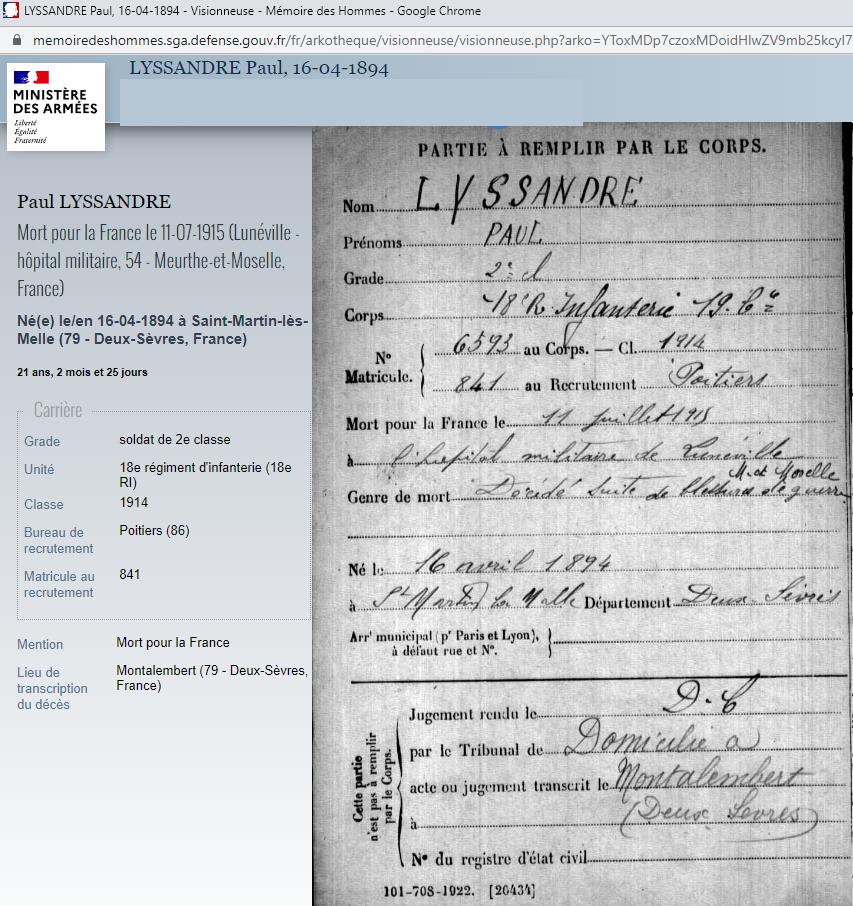 LYSSANDRE Paul, 16-04-1894 - Visionneuse - Mémoire des Hommes - Google Chrome
memoiredeshommes.sga.defense.gouv.fr/fr/arkotheque/visionneuse/visionneuse.php?arko=
LYSSANDRE Paul, 16-04-1894
MINISTÈRE
DES ARMÉES
Liberté
Égalité
Fraternité
Paul LYSSANDRE
Mort pour la France le 11-07-1915 (Lunéville -
hôpital militaire, 54 - Meurthe-et-Moselle,
France)
Né(e) le/en 16-04-1894 à Saint-Martin-lès-
Melle (79 - Deux-Sèvres, France)
21 ans, 2 mois et 25 jours
Carrière
Grade soldat de 2e classe
Unité 18e régiment d'infanterie (18e
RI)
Classe 1914
Bureau de Poitiers (86)
recrutement
Matricule au 841
recrutement
Mention Mort pour la France
Lieu de Montalembert (79 - Deux-Sèvres,
transcription France)
du décès
PARTIE À REMPLIR PAR LE CORPS.
Nom LYSSANDRE
Prénoms PAUL
Grade 2e cl
Corps 18e R. Infanterie 19. Cie
No Matricule. 6593 au Corps. — Cl. 1914
841 au Recrutement Poitiers
Mort pour la France le 11 juillet 1915
à l'hopital militaire de Lunéville
M. et Moselle
Genre de mort Décédé suite de blessures de guerre
Né le 16 avril 1894
à St Martin les Melle Département Deux-Sèvres
Arrt municipal (pr Paris et Lyon),
à défaut rue et No.
Cette partie
n'est pas à remplir
par le Corps.
Jugement rendu le D.C
par le Tribunal de Domicilié a
acte ou jugement transcrit le Montalembert
à (Deux Sevres)
No du registre d'état civil
101-708-1922. [26434]